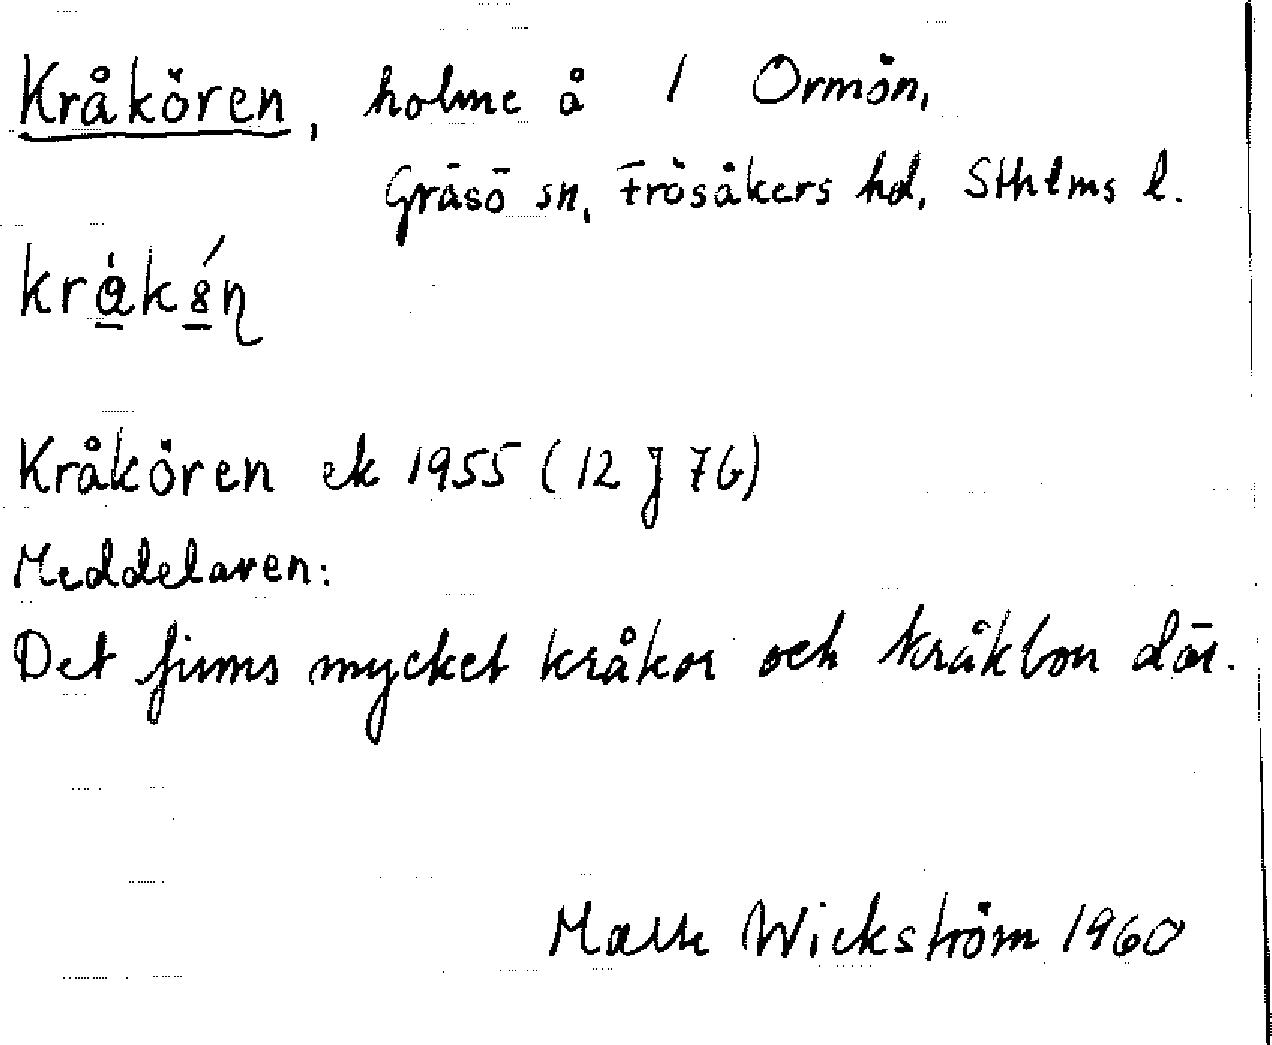 Kråkören, holme å 1 Ormön,
Gräsö sn, Frösåkers hd, Sthlms l.
Kråkören ek 1955 (12 J 7G)
Meddelaren:
Det finns mycket kråkor och kråkbon där.
Wickström 1960